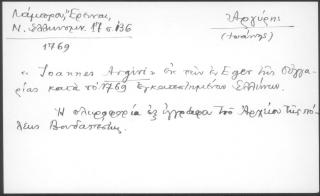 Λάμπρου, Ἔρευναι,
Ν. Ἑλληνομν. 17 σ. 136
1769
Ἀργύρης
(Ἰωάννης)
« Joannes Argiri» ἐκ τῶν ἐν Eger τῆς Οὑγγα-
ρίας κατὰ τὸ 1769 ἐγκατεστημένων Ἑλλήνων.
Ἡ πληροφορία ἐξ ἐγγράφων τοῦ Ἀρχείου τῆς πό-
λεως Βουδαπέστης.